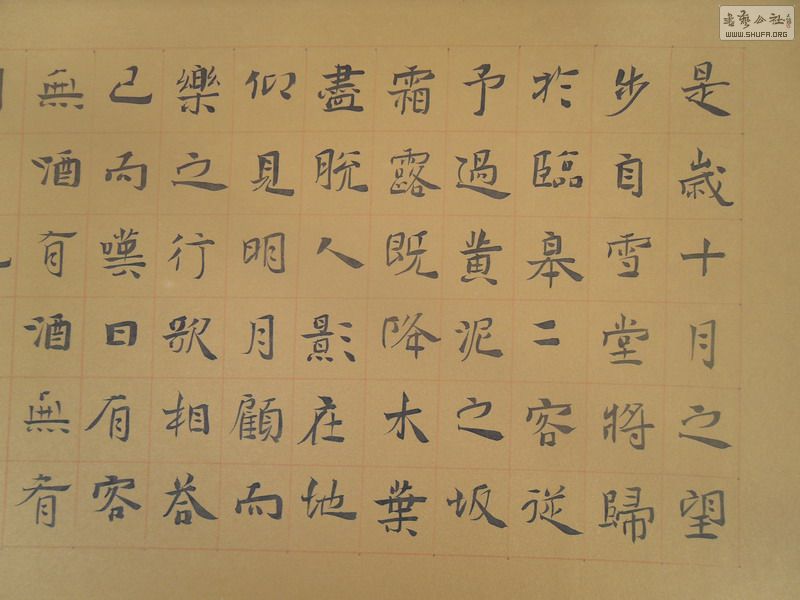 是歲十月之望
步自雪堂將歸
於臨皋二客從
予過黃泥之坂
霜露既降木葉
盡脫人影在地
仰見明月顧而
樂之行歌相答
已而嘆曰有客
無酒有酒無肴
書藝公社
WWW.SHUFA.ORG